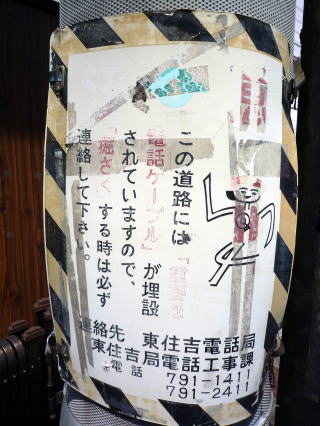 この道路には「重要な
電話ケーブル」が埋設
されていますので、
「掘さく」する時は必ず
連絡して下さい。
連絡先 東住吉電話局
東住吉電話局電話工事課
791-1411
791-2411